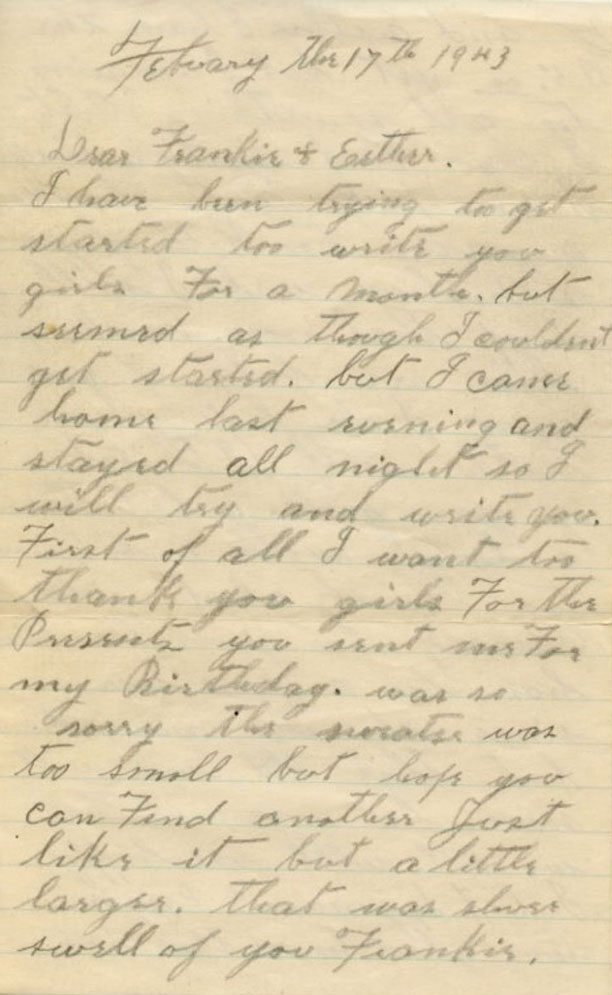 Febuary the 17th 1943
Dear Frankie & Esther.
I have been trying too get
started too write you
girls For a month. but
seemed as though I couldent
get started. but I came
home last evening and
stayed all night so I
will try and write you.
First of all I want too
thank you girls For the
Presents you sent me For
my Birthday. was so
sorry the sweater was
too small but hope you
can Find another Just
like it but a little
larger. that was shure
swell of you Frankie.